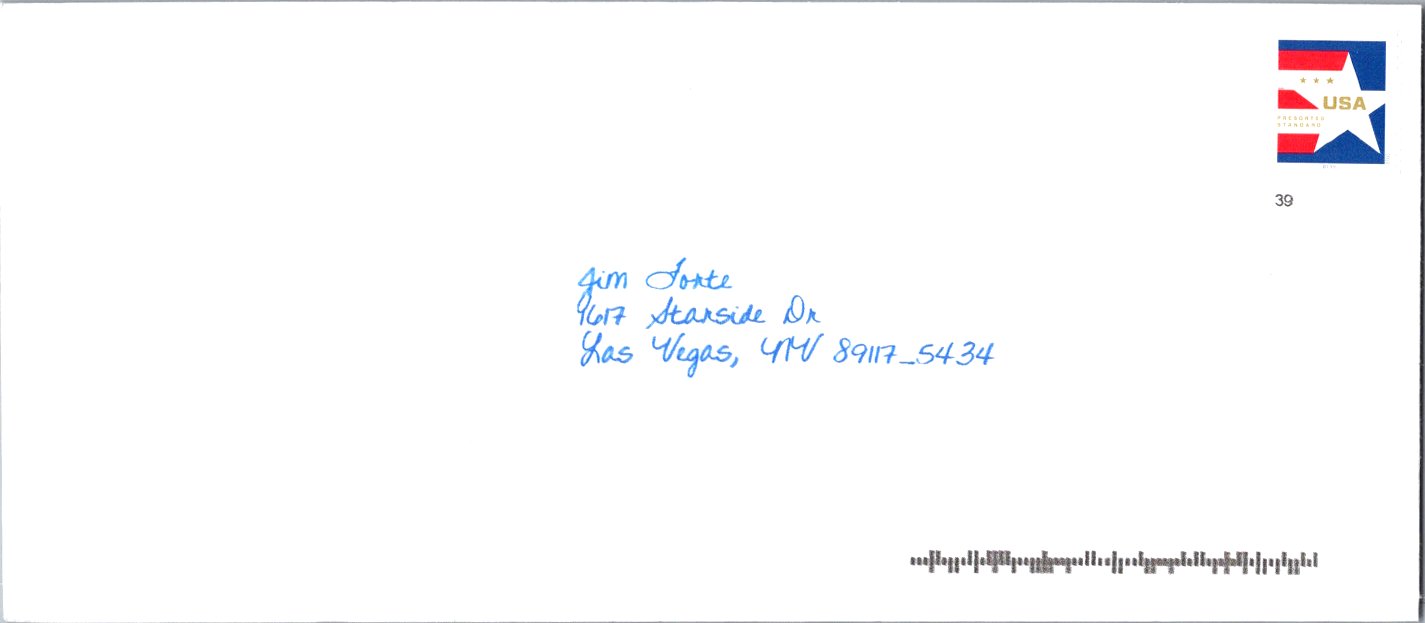 USA
PRESORTED
STANDARD
39
Jim Forte
9617 Starside Dr
Las Vegas, NV 89117-5434